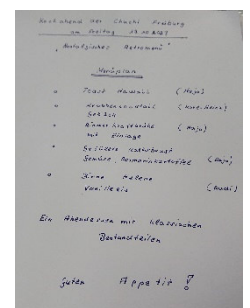 Kochabend der Chuchi Freiburg
am Freitag
„Nostalgisches Retromenü"
Menüplan
Toast Hawaii (Hajo)
Krabbencocktail
Gebäck
Rinderkraftbrühe (Hajo)
mit Einlage
Gefüllte Kalbsbrust
Gemüse, Rosmarinkartoffel (Hajo)
Birne Helene
Vanilleeis
Ein Abendessen mit klassischen
Bestandteilen
Guten Appetit !